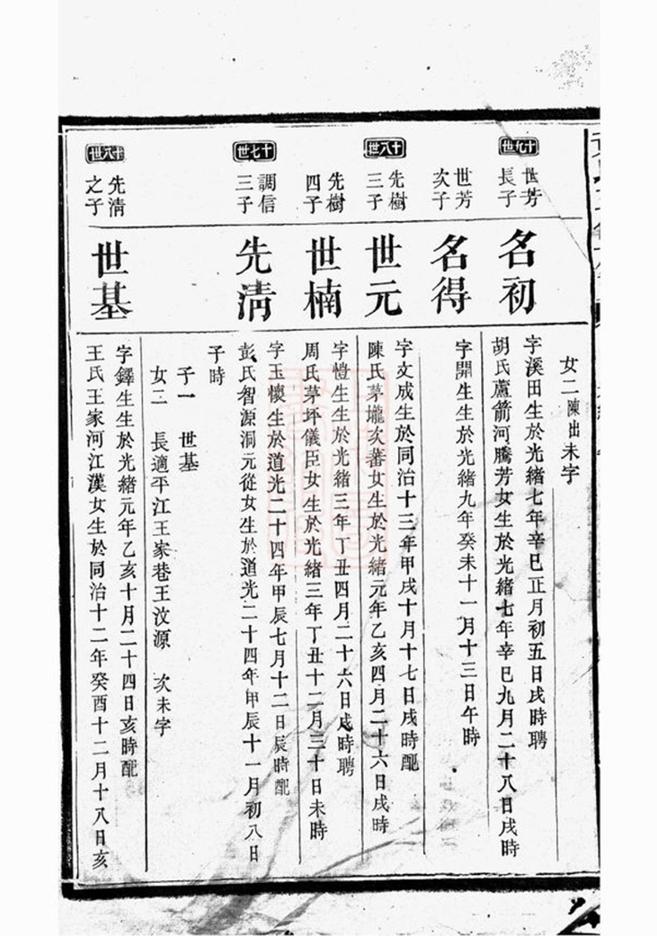 女二 陳出未字
十九世
世芳
長子
名初
字溪田生於光緒七年辛巳正月初五日戌時聘
胡氏蘆箭河騰芳女生於光緒七年辛巳九月二十八日戌時
世芳
次子
名得
字開生生於光緒九年癸未十一月十三日午時
十八世
先樹
三子
世元
字文成生於同治十三年甲戌十月十七日戌時配
陳氏茅壠次蕃女生於光緒元年乙亥四月二十六日戌時
先樹
四子
世楠
字愷生生於光緒三年丁丑四月二十六日戌時聘
周氏茅坪儀臣女生於光緒三年丁丑十二月三十日未時
十七世
調信
三子
先清
字玉懷生於道光二十四年甲辰七月十二日辰時配
彭氏智源洞元從女生於道光二十四年甲辰十一月初八日
子時
子一 世基
女二 長適平江王家巷王汶源 次未字
十八世
先清
之子
世基
字鐸生生於光緒元年乙亥十月二十四日亥時配
王氏王家河江漢女生於同治十二年癸酉十二月十八日亥